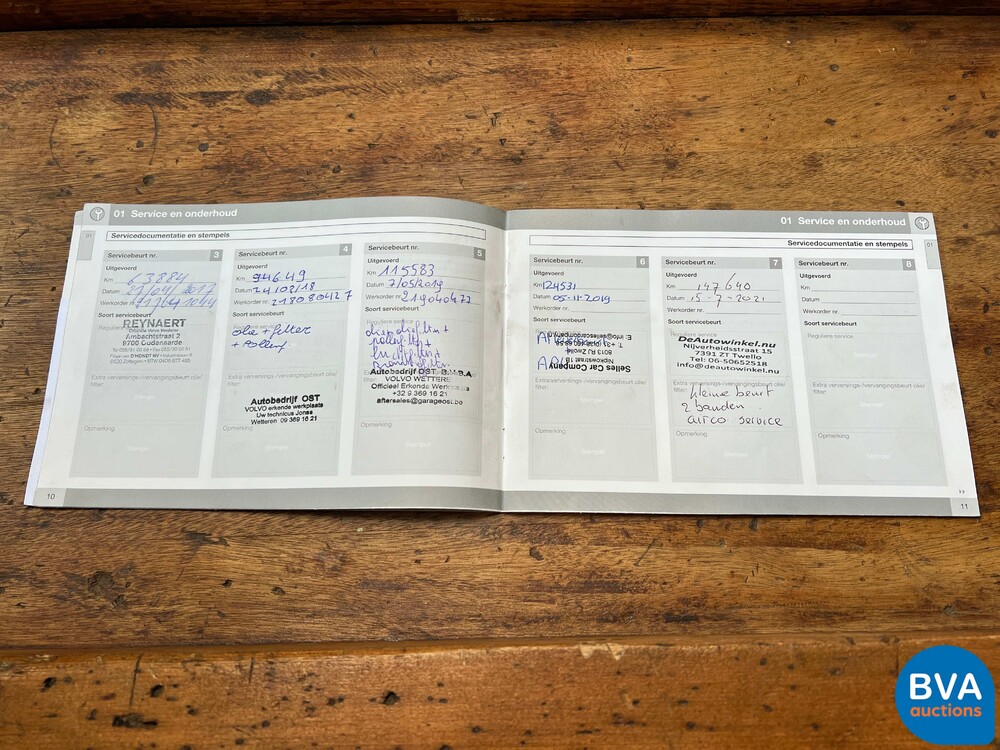 01 Service en onderhoud
01
Servicedocumentatie en stempels
Servicebeurt nr. 3
Uitgevoerd
Km 63884
Datum
Werkorder nr.
Soort servicebeurt
REYNAERT
Officiële Volvo Verdeler
Ambachtstraat 2
9700 Oudenaarde
Extra verversings-/vervangingsbeurt olie/
filter:
Opmerking
Stempel
Servicebeurt nr. 4
Uitgevoerd
Km 94649
Datum 24/08/18
Werkorder nr. 218080427
Soort servicebeurt
Reguliere service:
olie + filter
+ pollenf
Autobedrijf OST
VOLVO erkende werkplaats
Uw technicus Jonas
Wetteren 09 369 16 21
Opmerking
Stempel
Servicebeurt nr. 5
Uitgevoerd
Km 115583
Datum 7/05/2019
Werkorder nr. 219040477
Soort servicebeurt
Reguliere service:
Autobedrijf OST B.V.B.A
VOLVO WETTEREN
Officieel Erkende Werkplaats
+32 9 369 16 21
aftersales@garageost.be
Opmerking
Stempel
10
01 Service en onderhoud
01
Servicedocumentatie en stempels
Servicebeurt nr. 6
Uitgevoerd
Km 124531
Datum 05-11-2019
Werkorder nr.
Soort servicebeurt
Selles Car Company
Extra verversings-/vervangingsbeurt olie/
filter:
Opmerking
Stempel
Servicebeurt nr. 7
Uitgevoerd
Km 147640
Datum 15-7-2021
Werkorder nr.
Soort servicebeurt
DeAutowinkel.nu
Nijverheidsstraat 15
7391 ZT Twello
Tel: 06-50652518
info@deautowinkel.nu
Extra verversings-/vervangingsbeurt olie/
filter:
kleine beurt
2 banden
airco service
Opmerking
Stempel
Servicebeurt nr. 8
Uitgevoerd
Km
Datum
Werkorder nr.
Soort servicebeurt
Reguliere service:
Extra verversings-/vervangingsbeurt olie/
filter:
Opmerking
Stempel
11
BVA
auctions